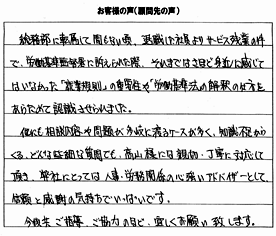 お客様の声(顧問先の声)
総務部に転属して間もない頃、退職した社員よりサービス残業の件
で、労働基準監督署に訴えられた際、それまではさほど身近に感じて
はいなかった「就業規則」の重要性や「労働基準法の解釈の仕方を
あらためて認識させられました。
他にも相談内容や問題が多岐に渡るケースが多く、知識不足から
くる、どんな些細な質問でも、高山様には親切・丁寧に対応して
頂き、弊社にとっては人事・労務関係の心強いアドバイザーとして、
信頼と感謝の気持ちでいっぱいです。
今後共ご指導、ご協力のほど、宜しくお願い致します。